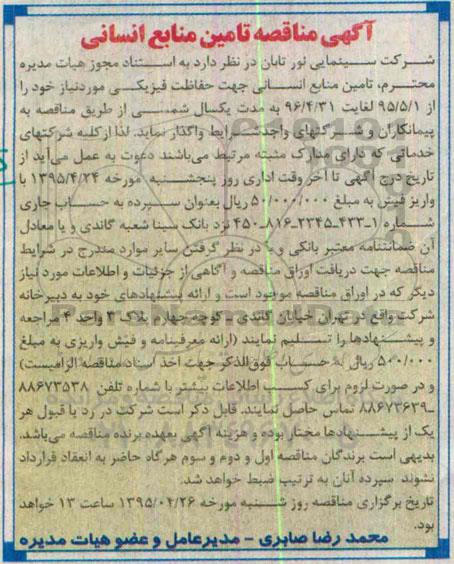 آگهی مناقصه تامین منابع انسانی
شرکت سینمایی نور تابان در نظر دارد به استناد مجوز هیات مدیره
محترم، تامین منابع انسانی جهت حفاظت فیزیکی موردنیاز خود را
از ۹۵/۵/۱ لغایت ۹۶/۴/۳۱ به مدت یکسال شمسی از طریق مناقصه به
پیمانکاران و شرکتهای واجدشرایط واگذار نماید. لذا ازکلیه شرکتهای
خدماتی که دارای مدارک مثبته مرتبط می‌باشند دعوت به عمل می‌آید از
تاریخ درج آگهی تا آخر وقت اداری روز پنجشنبه مورخه ۱۳۹۵/۴/۲۴ با
واریز فیش به مبلغ ۵۰/۰۰۰/۰۰۰ ریال بعنوان سپرده به حساب جاری
شماره ۱-۴۳۳-۲۳۴۵-۸۱۶-۴۵۰ نزد بانک سینا شعبه گاندی و یا معادل
آن ضمانتنامه معتبر بانکی و با در نظر گرفتن سایر موارد مندرج در شرایط
مناقصه جهت دریافت اوراق مناقصه و آگاهی از جزئیات و اطلاعات مورد نیاز
دیگر که در اوراق مناقصه موجود است و ارائه پیشنهادهای خود به دبیرخانه
شرکت واقع در تهران خیابان گاندی - کوچه چهارم پلاک ۳ واحد ۴ مراجعه
و پیشنهادها را تسلیم نمایند (ارائه معرفینامه و فیش واریزی به مبلغ
۵۰۰/۰۰۰ ریال به حساب فوق‌الذکر جهت اخذ اسناد مناقصه الزامیست)
و در صورت لزوم برای کسب اطلاعات بیشتر با شماره تلفن ۸۸۶۷۳۵۳۸
-۸۸۶۷۳۶۳۹ تماس حاصل نمایند. قابل ذکر است شرکت در رد یا قبول هر
یک از پیشنهادها مختار بوده و هزینه آگهی بعهده برنده مناقصه می‌باشد.
بدیهی است برندگان مناقصه اول و دوم و سوم هرگاه حاضر به انعقاد قرارداد
نشوند سپرده آنان به ترتیب ضبط خواهد شد.
تاریخ برگزاری مناقصه روز شنبه مورخه ۱۳۹۵/۰۴/۲۶ ساعت ۱۳ خواهد
بود.
محمد رضا صابری - مدیرعامل و عضو هیات مدیره